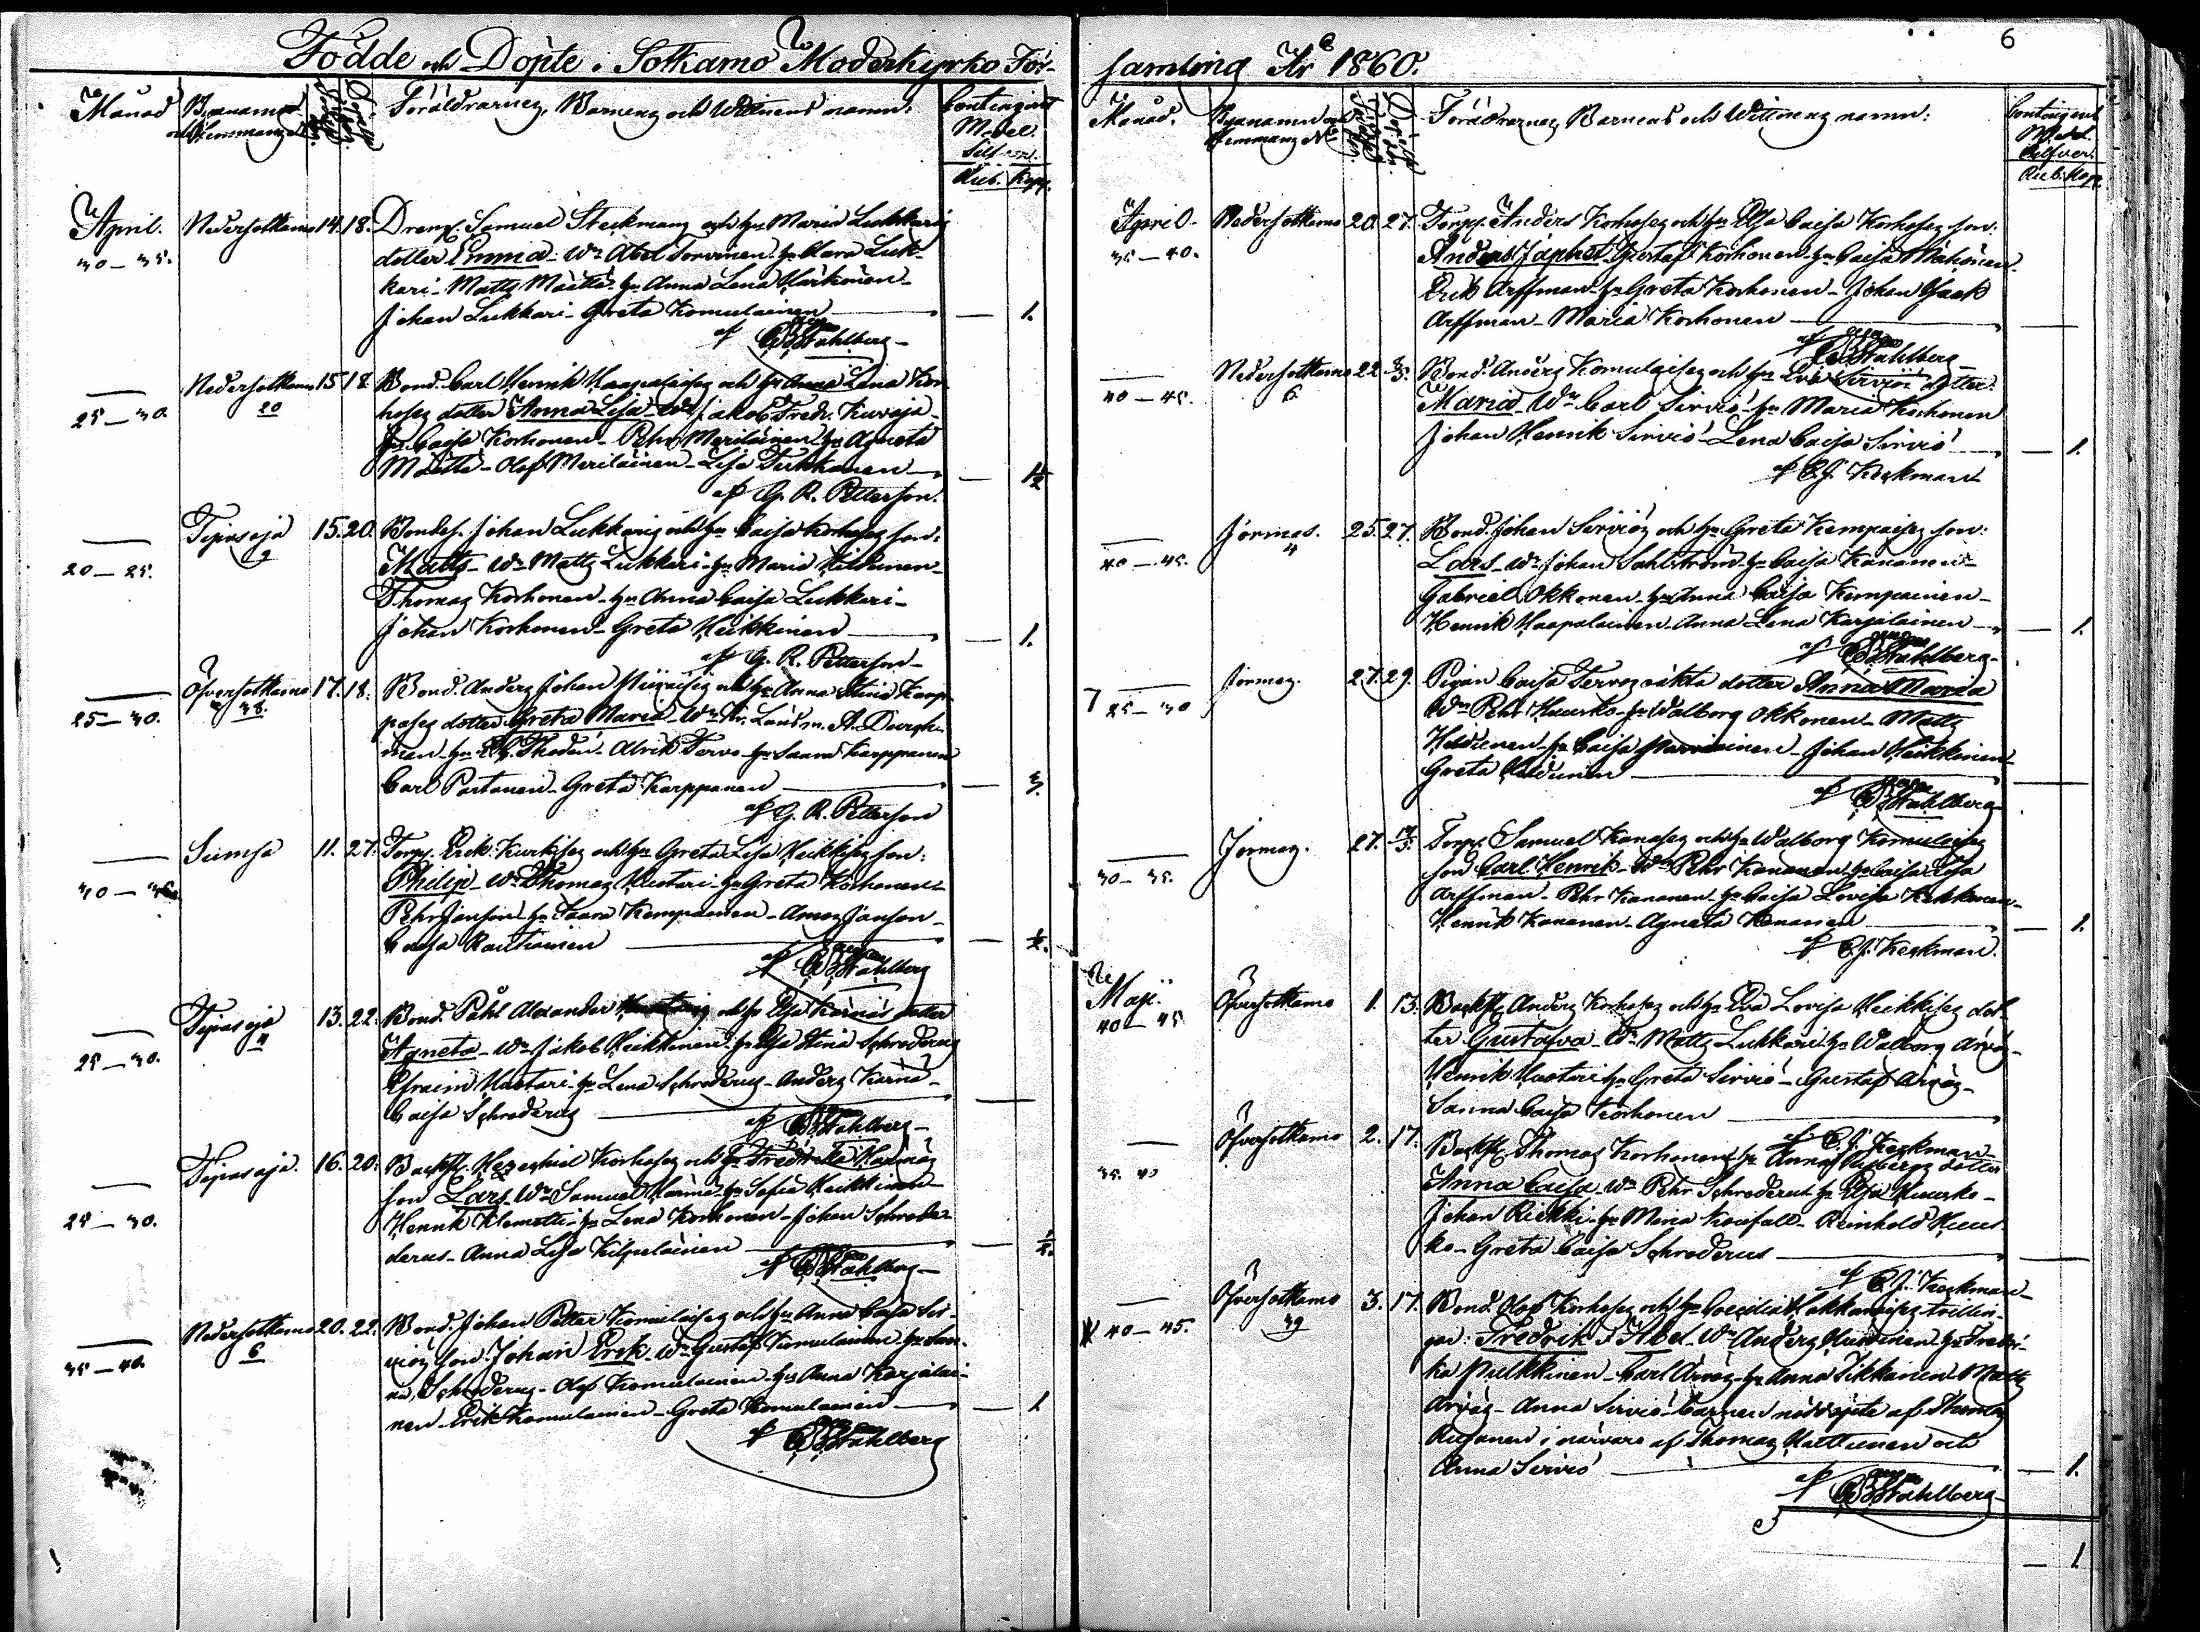 Födde och Döpte i Sotkamo Moderkyrko För-
Månad
Byanamn
och Hemmans N
Föräldrarnes, Barnens och Wittnens namn.
Contingent
Med.
Silfver.
Rub. Kop.
April.
30-35.
Nedersotkamo 14. 18. Dreng. Samuel Steckmans och h:u Maria Lukkaris
dotter Emma. W:n Abel Torvinen h:u Clara Luk-
kari - Matts Määttä - h:u Anna Lena Härkönen -
Johan Lukkari - Greta Komulainen — 1.
af Ståhlberg -
25-30.
Nedersotkamo 15 18. Bond. Carl Henrik Haapalaises och h:u Anna Lena Kor-
20
hoses dotter Anna Lisa - W:n Jakob Fredr. Kuvaja -
h:u Caisa Korhonen - Pehr Meriläinen h:u Agneta
Määttä - Olof Meriläinen - Lisa Turkkanen — 1½
af G. R. Petterson.
20-25.
Tipasoja
9
15. 20. Bondes. Johan Lukkaris och h:u Caisa Korhoses son:
Matts - W:n Matts Lukkari - h:u Maria Hiltunen -
Thomas Korhonen - h:u Anna Caisa Lukkari -
Johan Korhonen - Greta Heikkinen — 1.
af G. R. Petterson -
25-30.
Öfversotkamo
38.
17. 18. Bond. Anders Johan och h:u Anna Stina Karp-
pases dotter Greta Maria - W:n Kr. Länsm. A. Durch-
man - h:u Thodén - Alrik Tervo - h:u Saara Karppanen
Carl Partanen - Greta Karppanen —
af G. R. Petterson
Sumsa 11. 27. Torp. Erik Kurkises och h:u Greta Lisa Heikkises son:
Philip - W:n Thomas Huotari - h:u Greta Korhonen -
Pehr Janson - h:u Saara Kempainen - Amos Janson -
Caisa Rautiainen — ½.
af Ståhlberg
25-30.
Tipasoja
13. 22. Bond. Påhl Alexander och h:u Elsa Kärnäs dotter
Agneta - W:n Jakob Heikkinen - h:u Elsa Stina Schroderus
Efraim Huotari - h:u Lena Schroderus - Anders Kärnä -
Caisa Schroderus —
af Ståhlberg -
25-30.
Tipasoja. 16. 20. Backst. Hezeckiel Korhoses och h:u Fredrika
son Lars - W:n Samuel h:u Sofia Heikkinen
Henrik Klemetti - h:u Lena Korhonen - Johan Schro-
derus - Anna Lisa Kilpeläinen — ½.
af Ståhlberg -
35-40.
Nedersotkamo 20. 22. Bond. Johan Petter Komulaises och h:u Anna Caisa Sir-
6
viös son Johan Erik - W:n Gustaf Komulainen - h:u San-
na Schroderus - Olof Komulainen - h:u Anna Karjalai-
nen - Erik Komulainen - Greta Komulainen — 1
af Ståhlberg
samling År 1860.
6
Månad.
Byanamn och
Hemmans N
Föräldrarnes, Barnens och Wittnens namn:
Contingent
Med.
Silfver.
Rub. Kop.
April.
35-40.
Nedersotkamo 20. 27. Torp. Anders Korhoses och h:u Elsa Caisa Korhoses son:
Anders Japhet - Gustaf Korhonen - h:u Caisa Mähönen -
Erik Arffman - h:u Greta Korhonen - Johan Isaak
Arffman - Maria Korhonen —
af Ståhlberg -
40-45.
Nedersotkamo 22. Bond. Anders Komulaises och h:u Eva Serviös dotter
6
Maria - W:n Carl Sirviö - h:u Maria Korhonen
Johan Henrik Sirviö - Lena Caisa Sirviö — 1.
af C. J. Keckman
40-45.
Jormas.
4
25. 27. Bond. Johan Serviös och h:u Greta Kempaises son:
Lars - W:n Johan Sahlström - h:u Caisa Kananen -
Gabriel Okkonen - h:u Anna Caisa Kempainen -
Henrik Haapalainen - Anna Lena Karjalainen — 1.
af Ståhlberg -
25-30
Jormas. 27. 29. Pigan Caisa Tervos oäkta dotter Anna Maria
W:n Pehr Huusko - h:u Walborg Okkonen - Matts
Heldunen - h:u Caisa - Johan Heikkinen -
Greta Heldunen —
af Ståhlberg
30-35.
Jormas. 27. Torp. Samuel Kanases och h:u Walborg Komulaises
son Carl Henrik - W:n Pehr Kananen - h:u Caisa Lisa
Arffman - Pehr Kananen - h:u Caisa Lovisa Kekkonen -
Henrik Kananen - Agneta Kananen — 1.
af C. J. Keckman.
Maji.
40-45
Öfversotkamo 1. 13. Backst. Anders Korhoses och h:u Eva Lovisa Heikkises dot-
ter Gustafva - W:n Matts Lukkari - h:u Walborg Arvås -
Henrik Huotari - h:u Greta Sirviö - Gustaf Arvås -
Sanna Caisa Korhonen —
af C. J. Keckman
35-40
Öfversotkamo 2. 17. Backst. Thomas Korhonens h:u Anna dotter
Anna Caisa W:n Pehr Schroderus h:u Elsa Huusko -
Johan Riekki - h:u Maria - Reinhold Huus-
ko - Greta Caisa Schroderus —
af C. J. Keckman
40-45.
Öfversotkamo 3. 17. Bond. Olof Korhoses och h:u Caecilia Hakkaraises tvillin-
39
gar: Fredrik & Abel - W:n Anders h:u Fredri-
ka Pulkkinen - Carl Arvås - h:u Anna Tikkanen - Matts
Arvås - Anna Sirviö - barnen nöddöpte af Thomas
i närvaro af Thomas Hattunen och
Anna Sirviö — 1.
af Ståhlberg -
1